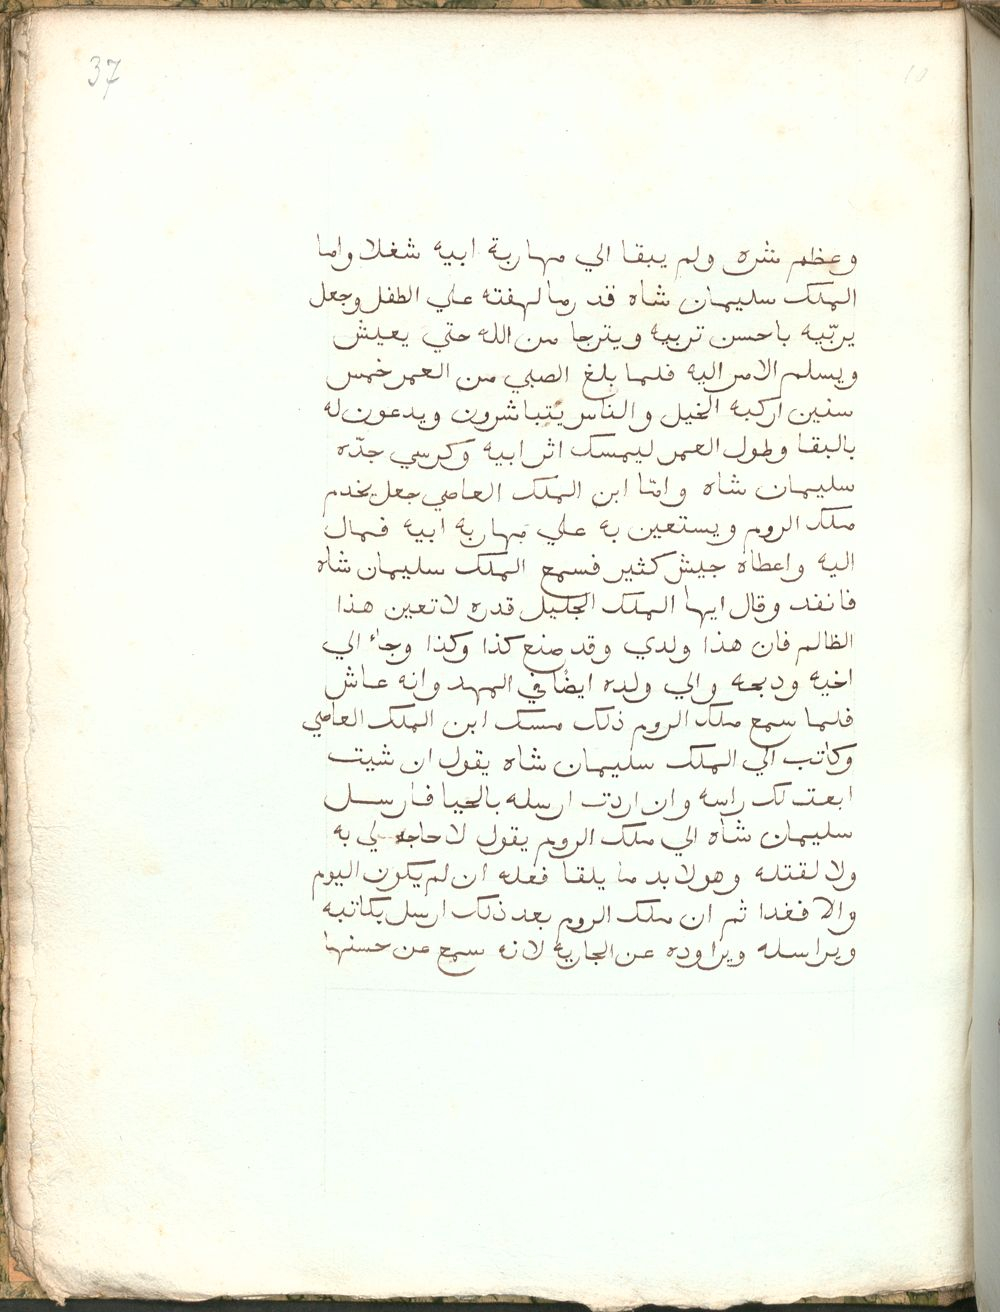 37
10
وعظم شره ولم يبقا الي مهاربة ابيه شغلا واما
الملك سليمان شاه قد رما لهفته علي الطفل وجعل
يربّيه باحسن تربيه ويترجا من الله حتي يعيش
ويسلم الامر اليه فلما بلغ الصبي من العمر خمس
سنين اركبه الخيل والناس يتباشرون ويدعون له
بالبقا وطول العمر ليمسك اثر ابيه وكرسي جدّه
سليمان شاه وامّا ابن الملك العاصي جعل يخدم
ملك الروم ويستعين به علي مهاربة ابيه فمال
اليه واعطاه جيش كثير فسمع الملك سليمان شاه
فانفد وقال ايها الملك الجليل قدره لا تعين هذا
الظالم فان هذا ولدي وقد صنع كذا وكذا وجاء الي
اخيه ودبحه والي ولده ايضًا في المهد وانه عاش
فلما سمع ملك الروم ذلك مسك ابن الملك العاصي
وكاتب الي الملك سليمان شاه يقول ان شيت
ابعت لك راسه وان اردت ارسله بالحيا فارسل
سليمان شاه الي ملك الروم يقول لا حاجه لي به
ولا لقتله وهو لا بد ما يلقا فعله ان لم يكون اليوم
والا فغدا ثم ان ملك الروم بعد ذلك ارسل يكاتبه
ويراسله ويراوده عن الجارية لانه سمع عن حسنها